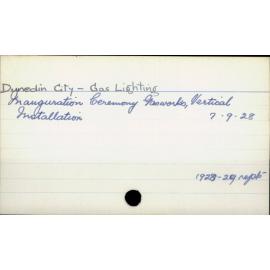 Dunedin City - Gas Lighting
Inauguration Ceremony Gasworks, Vertical
Installation 7-9-28
1928-29 repts